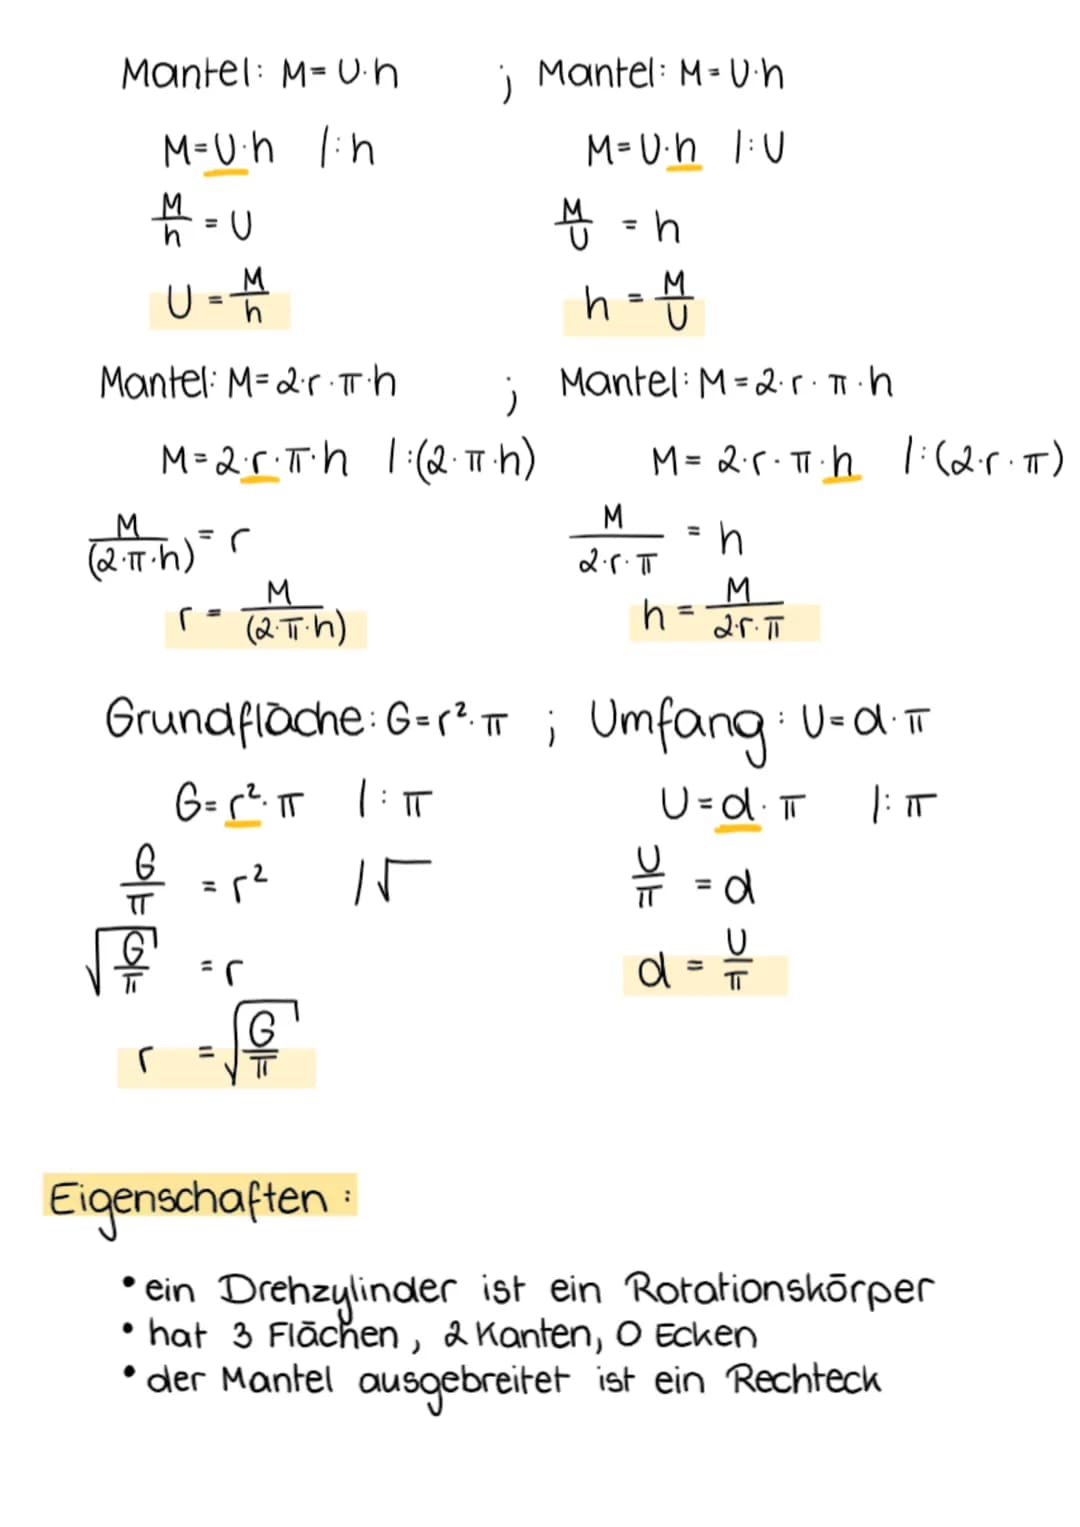 Mantel: M=U·h ; Mantel: M=U·h
M=U·h |:h M=U·h |:U
M/h = U M/U = h
U = M/h h = M/U
Mantel: M=2·r·π·h ; Mantel: M=2·r·π·h
M=2·r·π·h |:(2·π·h) M=2·r·π·h |:(2·r·π)
M/(2·π·h) = r M/2·r·π = h
r = M/(2·π·h) h = M/2·r·π
Grundfläche: G=r²·π ; Umfang: U=d·π
G=r²·π |:π U=d·π |:π
G/π = r² |√ U/π = d
√G/π = r d = U/π
r = √G/π
Eigenschaften:
• ein Drehzylinder ist ein Rotationskörper
• hat 3 Flächen, 2 Kanten, 0 Ecken
• der Mantel ausgebreitet ist ein Rechteck